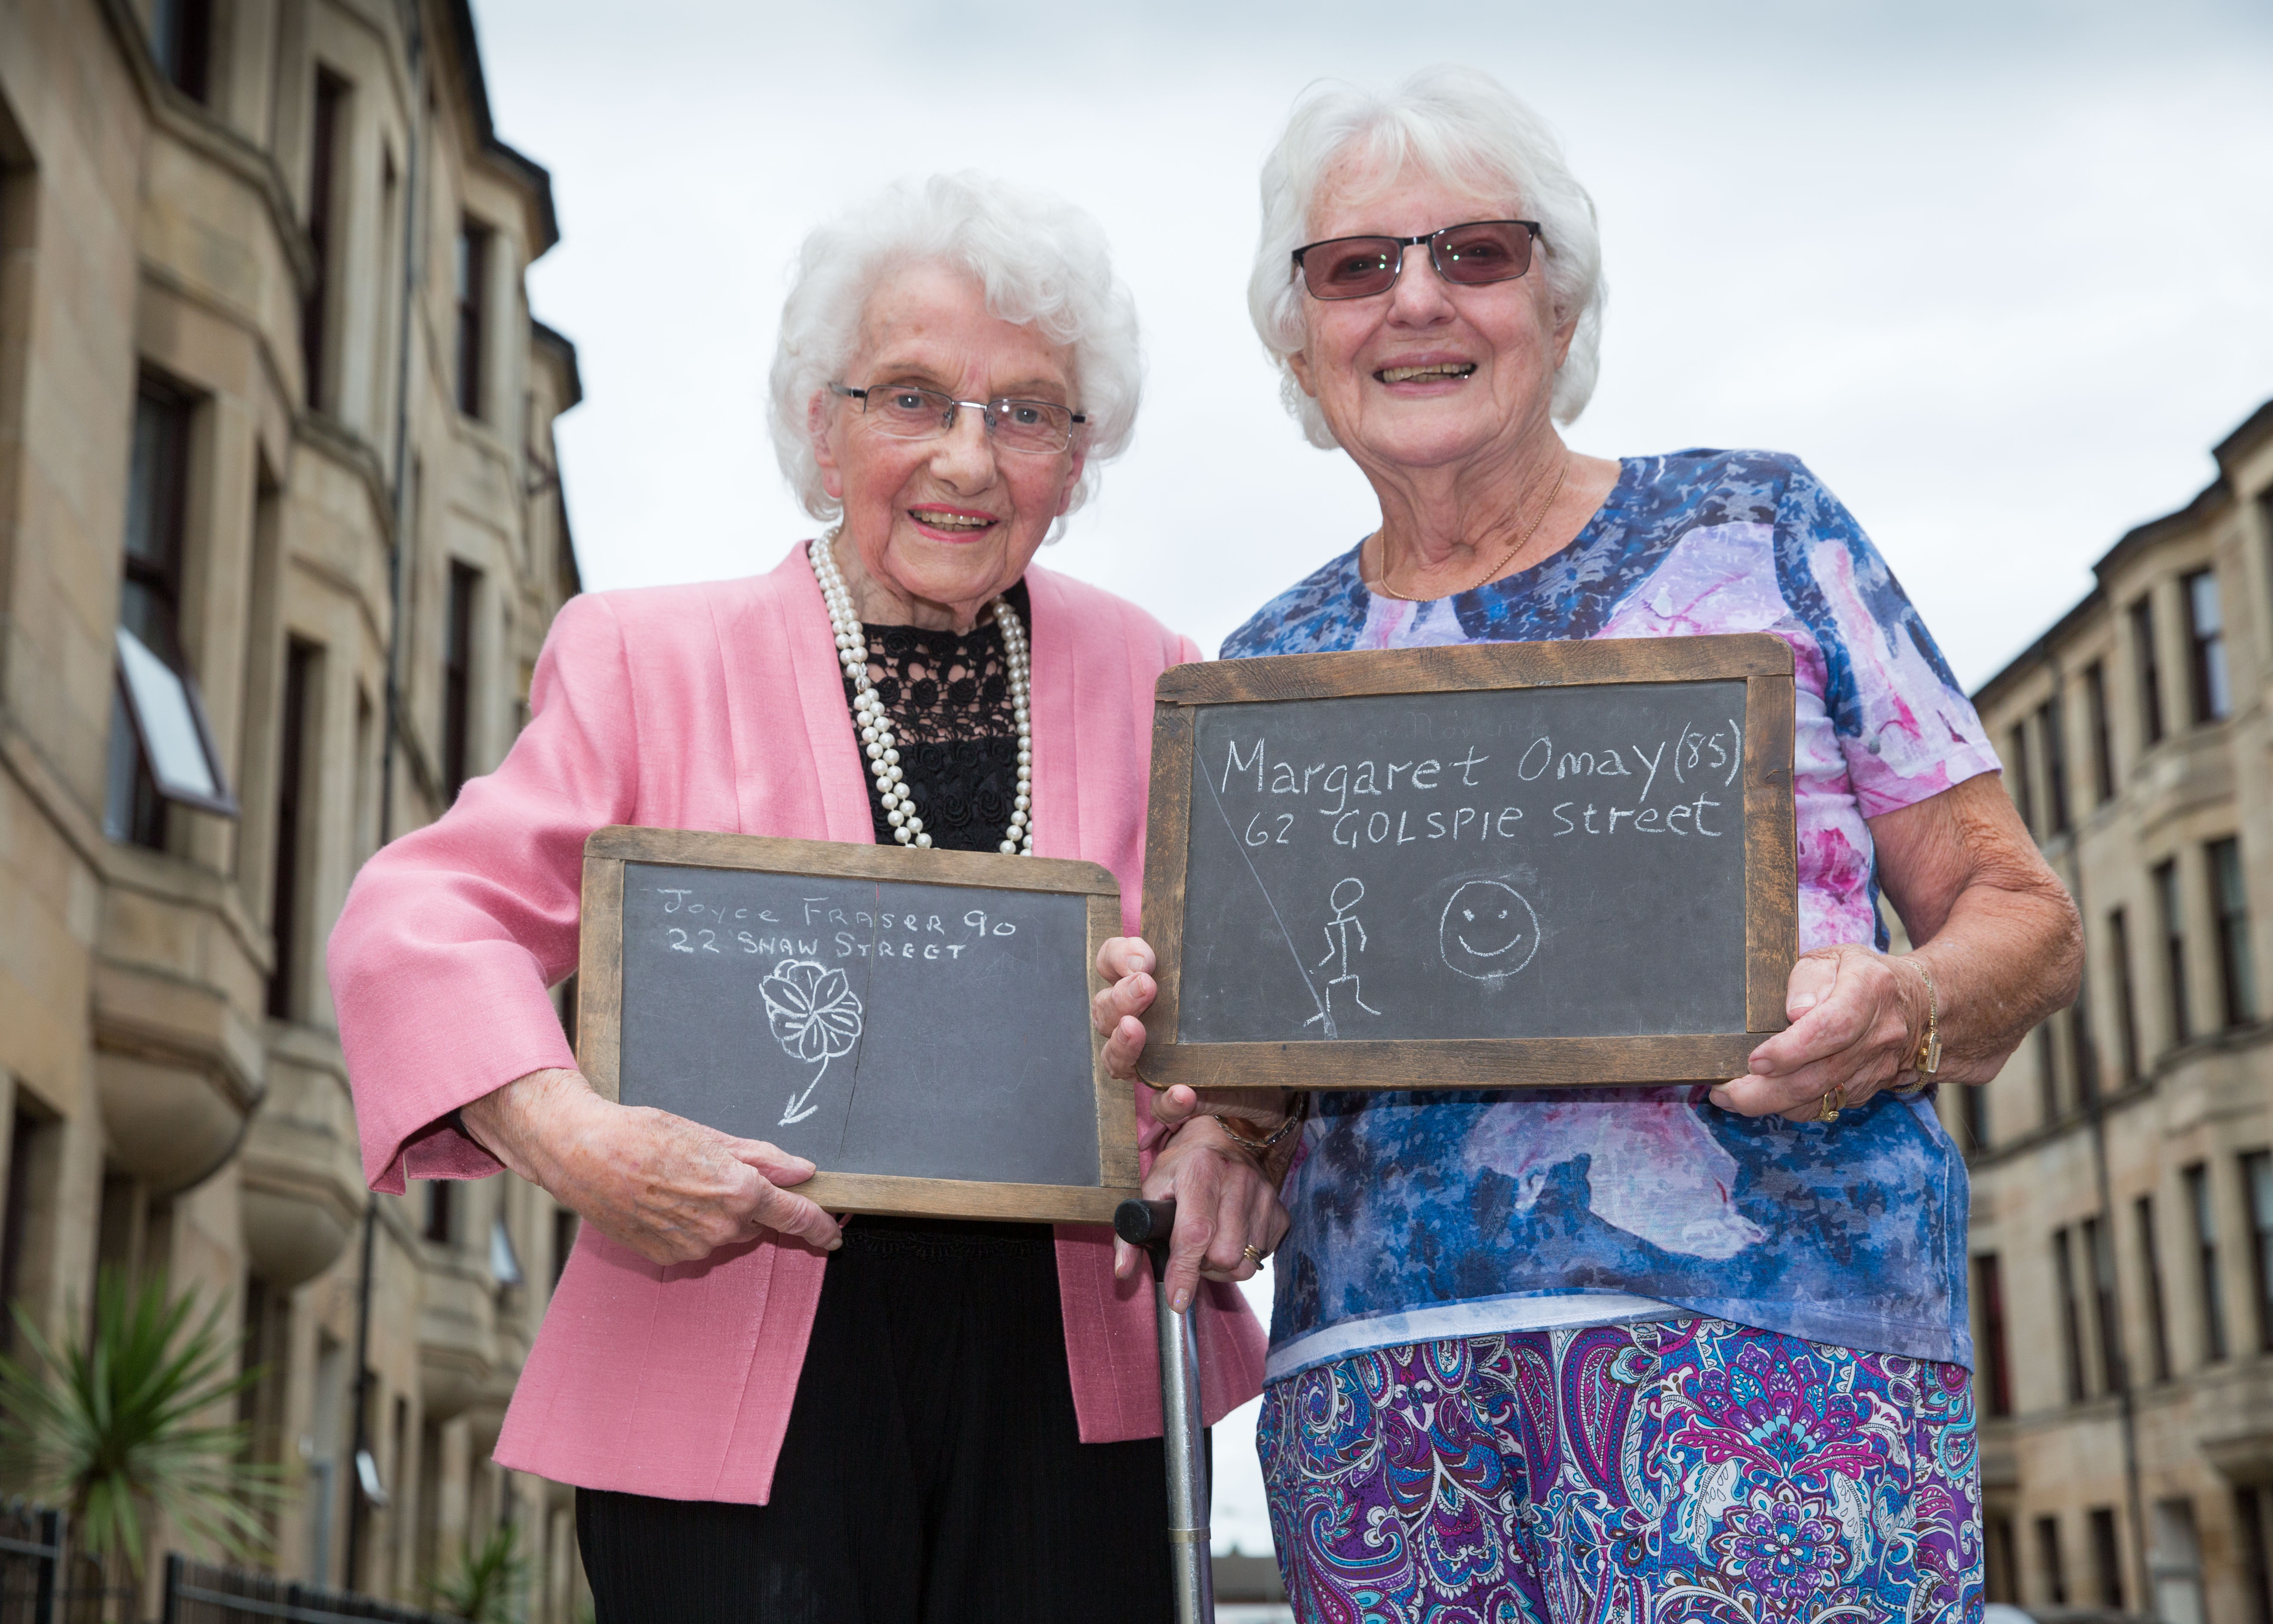 Joyce FRASER 90
22 SHAW STREET
Margaret Omay (85)
62 GOLSPIE Street